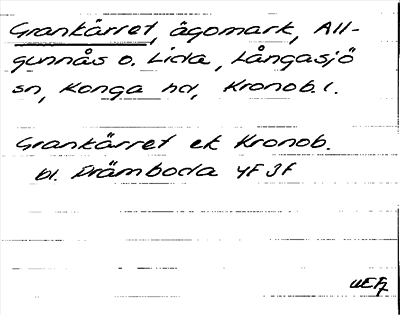 Grankärret, ägomark, All-
gunnås o. Lida, Långasjö
sn, Konga hd, Kronob. l.
Grankärret ek Kronob.
bl. Främboda 4F 3f